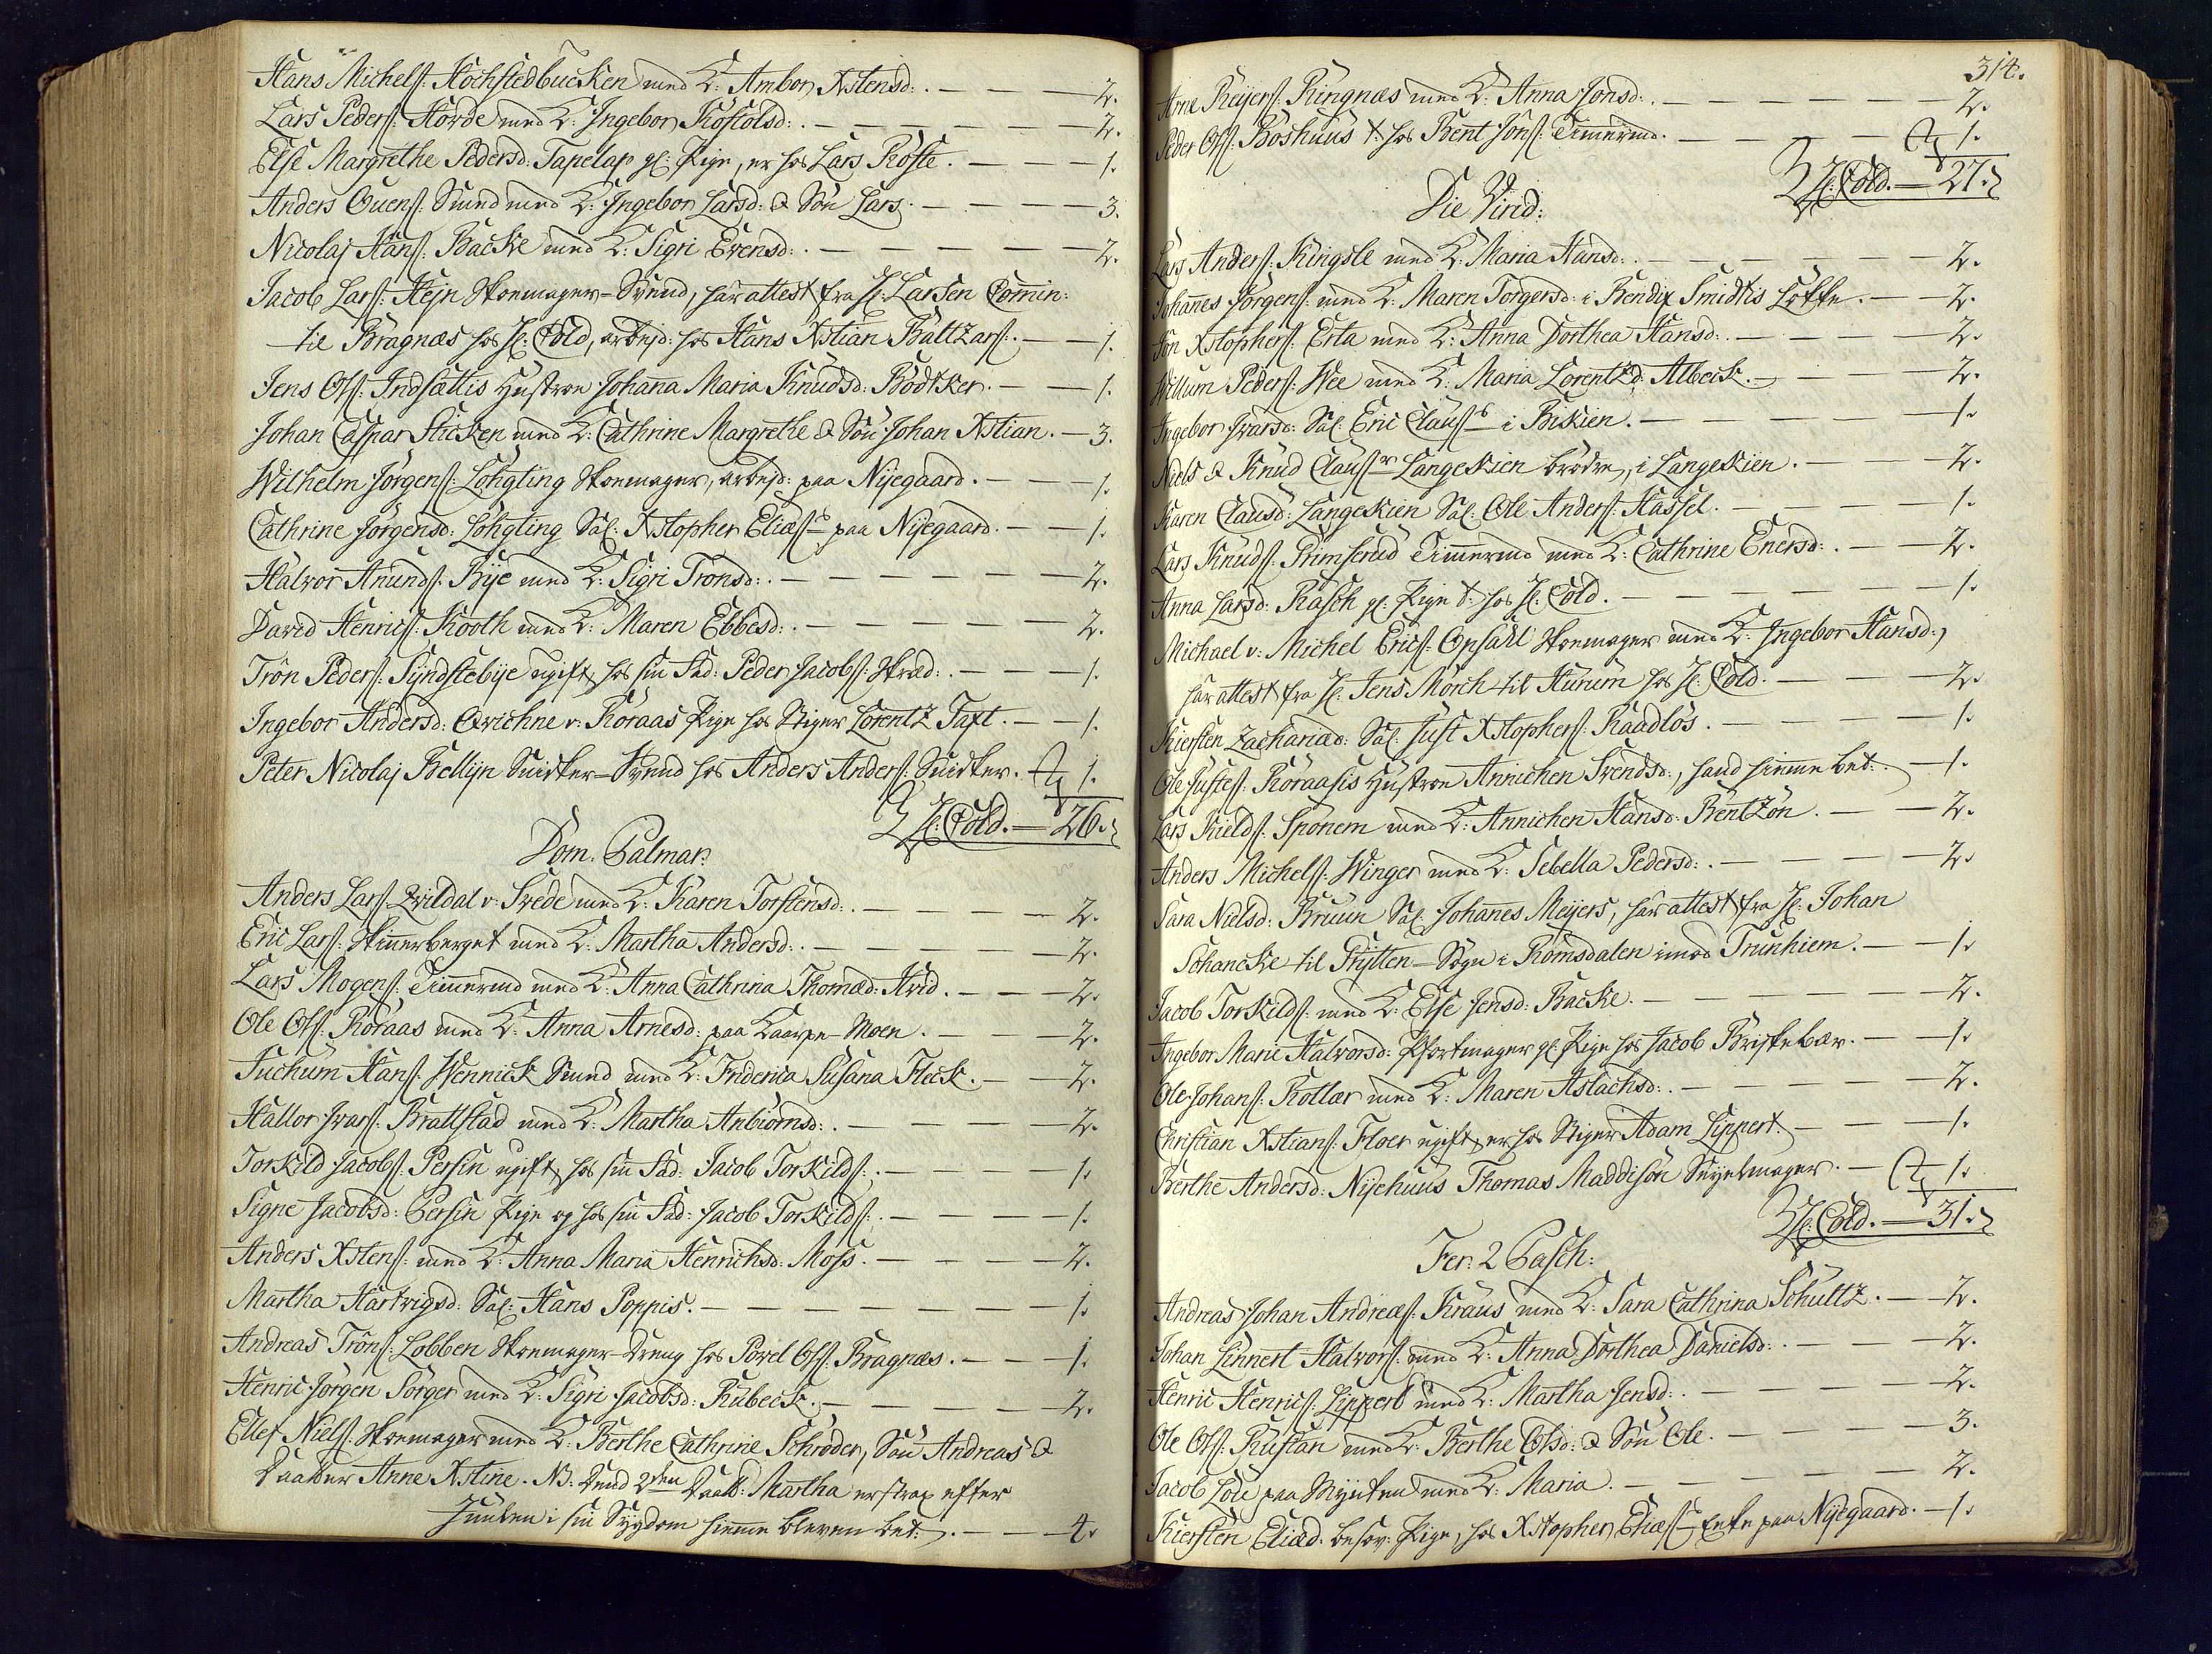 Hans Michels: Hochstedbucken med K: Ambor Xstensd: . — 2.
Lars Peders: Horde med K: Ingebor Roskolsd: . — 2.
Else Margrethe Pedersd: Tapelap gl: Pige, er hos Lars Röste. — 1.
Anders Ouens: Smed med K: Ingebor Larsd: & Sön Lars. — 3.
Nicolaj Hans: Backe med K: Sigri Evensd: . — 2.
Jacob Lars: Hejn Skomager-Svend, har attest fra H: Larsen Commin:
til Bragnæs hos H: Cold, arbejd: hos Hans Xstian Baltzars: . — 1.
Jens Ols: Indsættis Hustroe Johanna Maria Knudsd: Bödtker. — 1.
Johan Caspar Sticken med K: Cathrine Margrethe & Sön Johan Xstian. — 3.
Wilhelm Jörgens: Löhgting Skomager, arbejd: paa Nyegaard. — 1.
Cathrine Jörgensd: Löhgting Sal: Xstopher Elias: paa Nyegaard. — 1.
Halvor Anunds: Bye med K: Sigri Tronsd: . — 2.
David Henrics: Kooth med K: Maren Ebbesd: . — 2.
Trön Peders: Syndstebye ugift, hos sin Fad: Peder Jacobs: Skræd: . — 1.
Ingebor Andersd: Qvichne v: Röraas Pige hos Stiger Lorentz Taxt. — 1.
Peter Nicolaj Bellyn Snidker-Svend hos Anders Anders: Snidker. 1.
H: Cold. — 26.
Dom. Palmar:
Anders Lars: Qvildal v: Svede med K: Karen Torstensd: . — 2.
Eric Lars: Skinnerberget med K: Martha Andersd: . — 2.
Lars Mogens: Timmermd med K: Anna Cathrina Thomæd: Hvid. — 2.
Ole Ols: Röraas med K: Anna Arnesd: paa Kaarpe-Moen. — 2.
Juchum Hans: Wennick Smed med K: Friderica Susana Fleck. — 2.
Hallor Ivars: Brattstad med K: Martha Anbiörnsd: . — 2.
Torkild Jacobs: Persin ugift, hos sin Fad: Jacob Torkilds: . — 1.
Signe Jacobsd: Persin Pige og hos sin Fad: Jacob Torkilds: . — 1.
Anders Xstens: med K: Anna Maria Henrichsd: Moss. — 2.
Martha Hartvigsd: Sal: Hans Poppis. — 1.
Andreas Tröns: Lobben Skomager-Dreng hos Povel Ols: Bragnæs. — 1.
Henric Jörgen Sörger med K: Sigri Jacobsd: Rubeck. — 2.
Ellef Niels: Skomager med K: Berthe Cathrine Schröder, Sön Andreas &
Daatter Anne Xstine. NB: Dend 2den Daatt: Martha er strax efter
Juulen i sin Sygdom hiemme bleven bet: . — 4.
314.
Arne Reijers: Ringnæs med K: Anna Jonsd: . — 2.
Peder Ols: Boshuus t: hos Bent Jöns: Timmermd. — 1.
H: Cold. — 27.
Die Virid:
Lars Anders: Kingsle med K: Maria Hansd: . — 2.
Johannes Jörgens: med K: Maren Torgersd: i Bendix Smidtis Løkke. — 2.
Jön Xstophers: Erta med K: Anna Dorthea Hansd: . — 2.
Willum Peders: Wee med K: Maria Lorentzd: Albeck. — 2.
Ingebor Ivarsd: Sal: Eric Claus: i Bikien. — 1.
Niels & Knud Claus: Langeskien brödre, i Langeskien. — 2.
Karen Clausd: Langeskien Sal: Ole Anders: Hassel. — 1.
Lars Knuds: Primserud Timmermd med K: Cathrine Enersd: . — 2.
Anna Larsd: Rasch gl: Pige t: hos H: Cold. — 1.
Michael v: Michel Erics: Opsahl Skomager med K: Ingebor Hansd:,
har attest fra H: Jens Mörch til Hurum hos H: Cold. — 2.
Kiersten Zachariæd: Sal: Just Xstophers: Raadlös. — 1.
Ole Justes: Röraasis Hustroe Annichen Svendsd:, hand hiemme bet: . — 1.
Lars Kields: Sponem med K: Annichen Hansd: Bentzön. — 2.
Anders Michels: Winger med K: Sebella Pedersd: . — 2.
Sara Nielsd: Bruun Sal: Johannes Meijers, har attest fra H: Johan
Schancke til Grytten-Sogn i Romsdalen imod Trunhiem. — 1.
Jacob Torkilds: med K: Else Jensd: Backe. — 2.
Ingebor Marie Halvorsd: Skortmager gl: Pige hos Jacob Briskebær. — 1.
Ole Johans: Kotlær med K: Maren Aslachsd: . — 2.
Christian Xstians: Floer ugift, er hos Stiger Adam Lippert. — 1.
Berthe Andersd: Nyehuus Thomas Maddisön Seyelmager. — 1.
H: Cold. — 31.
Fer: 2 Pasch:
Andreas Johan Andreæs: Kraus med K: Sara Cathrina Schultz. — 2.
Johan Linnert Halvors: med K: Anna Dorthea Danielsd: . — 2.
Henric Henrics: Lippert med K: Martha Jensd: . — 2.
Ole Ols: Rustan med K: Berthe Olsd: & Sön Ole. — 3.
Jacob Löe paa Mynten med K: Maria. — 2.
Kiersten Eliæd: besov: Pige, hos Xstopher Eliæs: Enke paa Nyegaard. — 1.